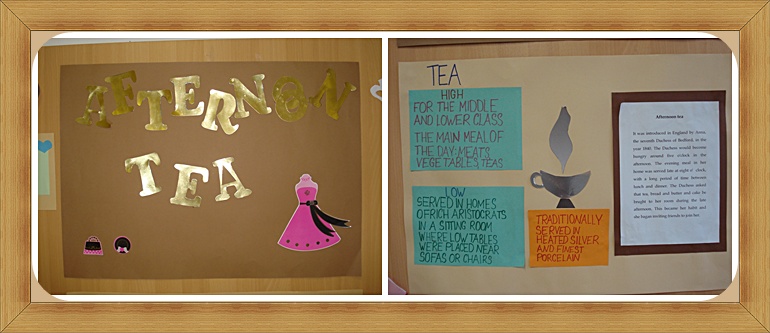 AFTERNOON
TEA
TEA
HIGH
FOR THE MIDDLE
AND LOWER CLASS
THE MAIN MEAL OF
THE DAY: MEATS,
VEGETABLES, TEAS
LOW
SERVED IN HOMES
OF RICH ARISTOCRATS
IN A SITTING ROOM
WHERE LOW TABLES
WERE PLACED NEAR
SOFAS OR CHAIRS
TRADITIONALLY
SERVED IN
HEATED SILVER
AND FINEST
PORCELAIN
Afternoon tea
It was introduced in England by Anna,
the seventh Duchess of Bedford, in the
year 1840. The Duchess would become
hungry around five o'clock in the
afternoon. The evening meal in her
home was served late at eight o' clock,
with a long period of time between
lunch and dinner. The Duchess asked
that tea, bread and butter and cake be
brought to her room during the late
afternoon. This became her habit and
she began inviting friends to join her.